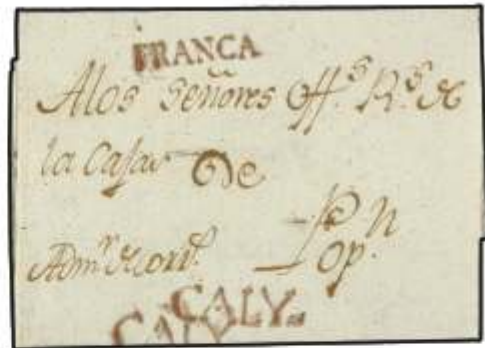 FRANCA
A los Señores Off.s R.s de
la Cajas de
Pop.n
Adm.r
CALY
CALY